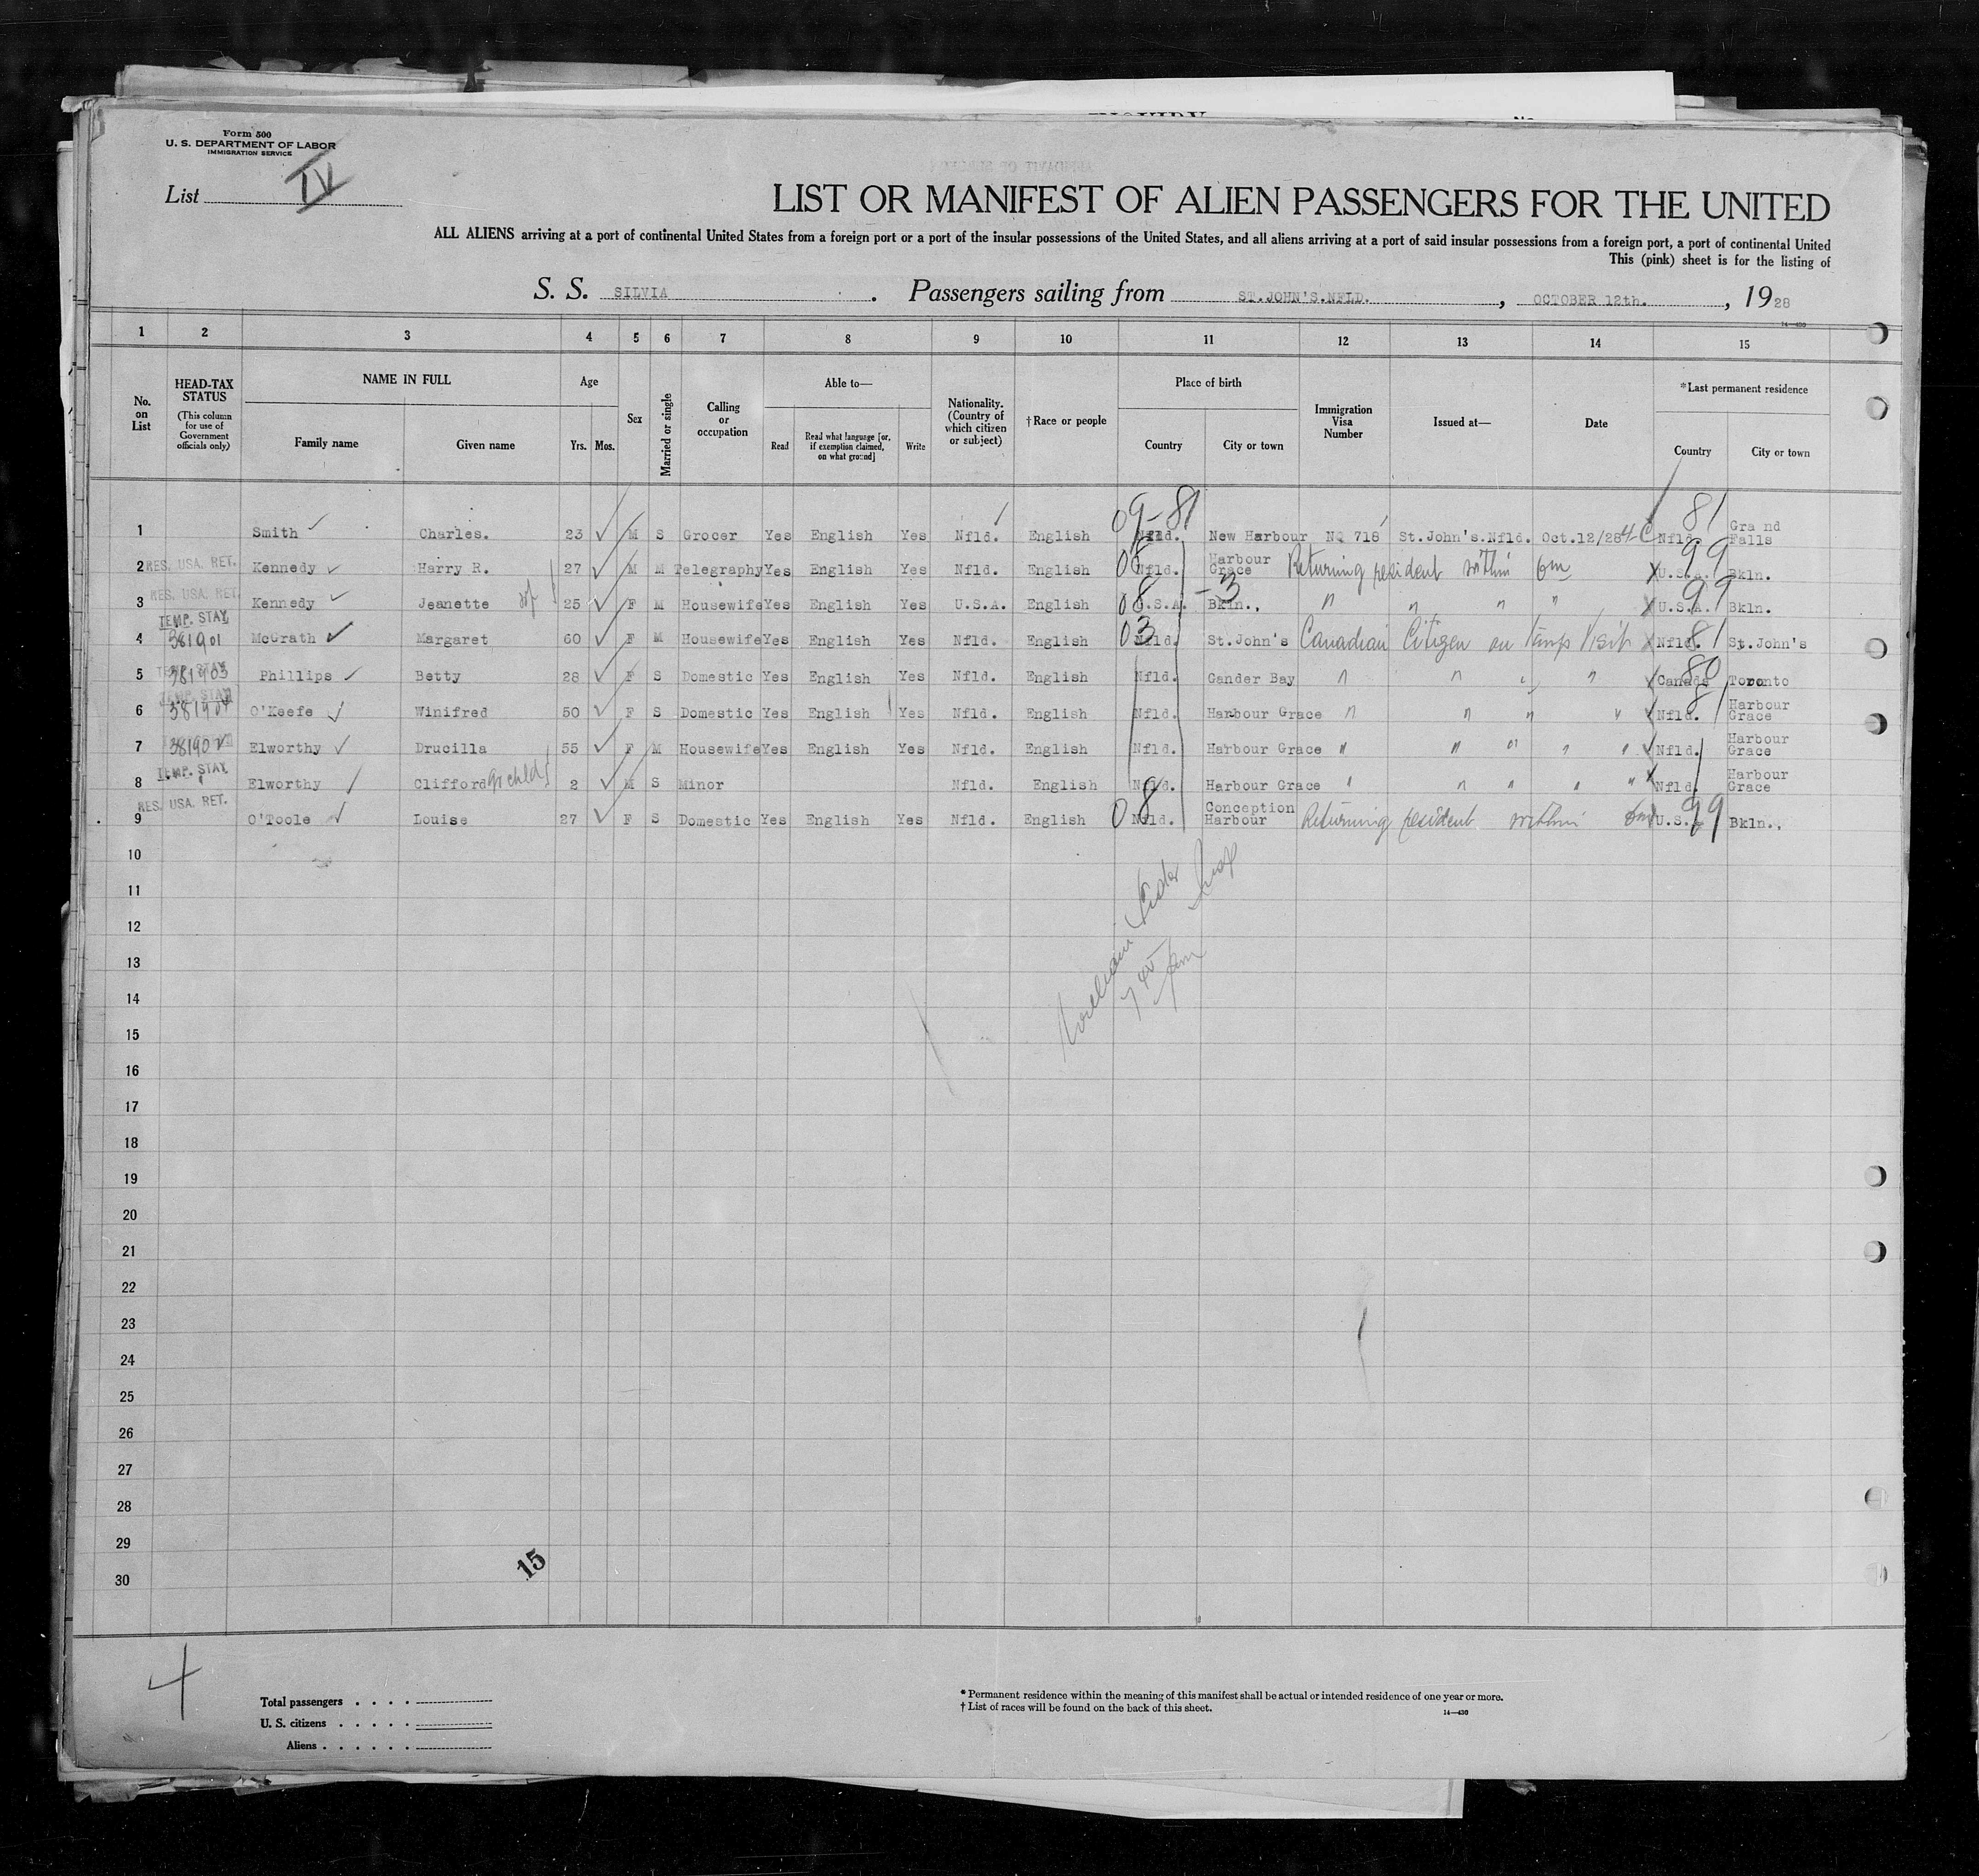 Form 500
U. S. DEPARTMENT OF LABOR
IMMIGRATION SERVICE
List IV
LIST OR MANIFEST OF ALIEN PASSENGERS FOR THE UNITED
ALL ALIENS arriving at a port of continental United States from a foreign port or a port of the insular possessions of the United States, and all aliens arriving at a port of said insular possessions from a foreign port, a port of continental United
This (pink) sheet is for the listing of
S. S. SILVIA. Passengers sailing from ST.JOHN'S.NFLD., OCTOBER 12th., 1928
14—430
1 2 3 4 5 6 7 8 9 10 11 12 13 14 15
No. on List
HEAD-TAX STATUS (This column for use of Government officials only)
NAME IN FULL
Family name Given name
Age
Yrs. Mos.
Sex
Married or single
Calling or occupation
Able to—
Read Read what language [or, if exemption claimed, on what ground] Write
Nationality. (Country of which citizen or subject)
†Race or people
Place of birth
Country City or town
Immigration Visa Number
Issued at—
Date
*Last permanent residence
Country City or town
1 Smith Charles. 23 M S Grocer Yes English Yes Nfld. English 09-81 Nfld. New Harbour NQ 718 St.John's.Nfld. Oct.12/28 4C Nfld. 81 Gra nd Falls
2 RES. USA. RET. Kennedy Harry R. 27 M M Telegraphy Yes English Yes Nfld. English 08 Nfld. Harbour Grace Returning resident within 6m U.S.A. 99 Bkln.
3 RES. USA. RET. Kennedy Jeanette wf 25 F M Housewife Yes English Yes U.S.A. English 08 U.S.A. -3 Bkln., " " " " U.S.A. 99 Bkln.
4 TEMP. STAY 381901 McGrath Margaret 60 F M Housewife Yes English Yes Nfld. English 03 Nfld. St.John's Canadian Citizen on Temp Visit Nfld. 81 St.John's
5 TEMP. STAY 381903 Phillips Betty 28 F S Domestic Yes English Yes Nfld. English Nfld. Gander Bay " " " " Canada 80 Toronto
6 TEMP. STAY O'Keefe Winifred 50 F S Domestic Yes English Yes Nfld. English Nfld. Harbour Grace " " " " Nfld. 81 Harbour Grace
7 381902 Elworthy Drucilla 55 F M Housewife Yes English Yes Nfld. English Nfld. Harbour Grace " " " " " Nfld. Harbour Grace
8 TEMP. STAY " Elworthy Clifford gr child 2 M S Minor Nfld. English Nfld. Harbour Grace " " " " " Nfld. Harbour Grace
9 RES. USA. RET. O'Toole Louise 27 F S Domestic Yes English Yes Nfld. English 08 Nfld. Conception Harbour Returning resident within 6m U.S. 99 Bkln.,
10
11
12
13
14
15
16
17
18
19
20
21
22
23
24
25
26
27
28
29
30
William
15
4
Total passengers
U. S. citizens
Aliens
*Permanent residence within the meaning of this manifest shall be actual or intended residence of one year or more.
†List of races will be found on the back of this sheet.
14—430